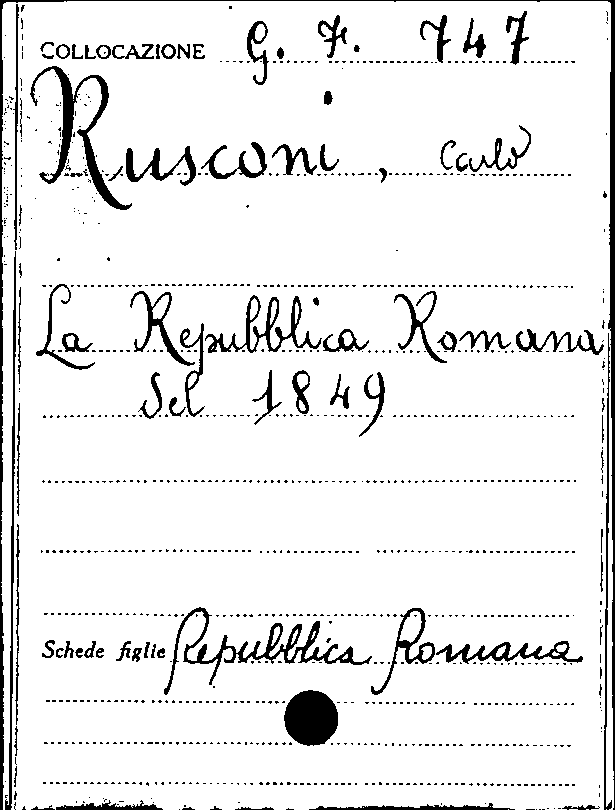 COLLOCAZIONE G. F. 747
Rusconi, Carlo
La Repubblica Romana
del 1849
Schede figlie Repubblica Romana